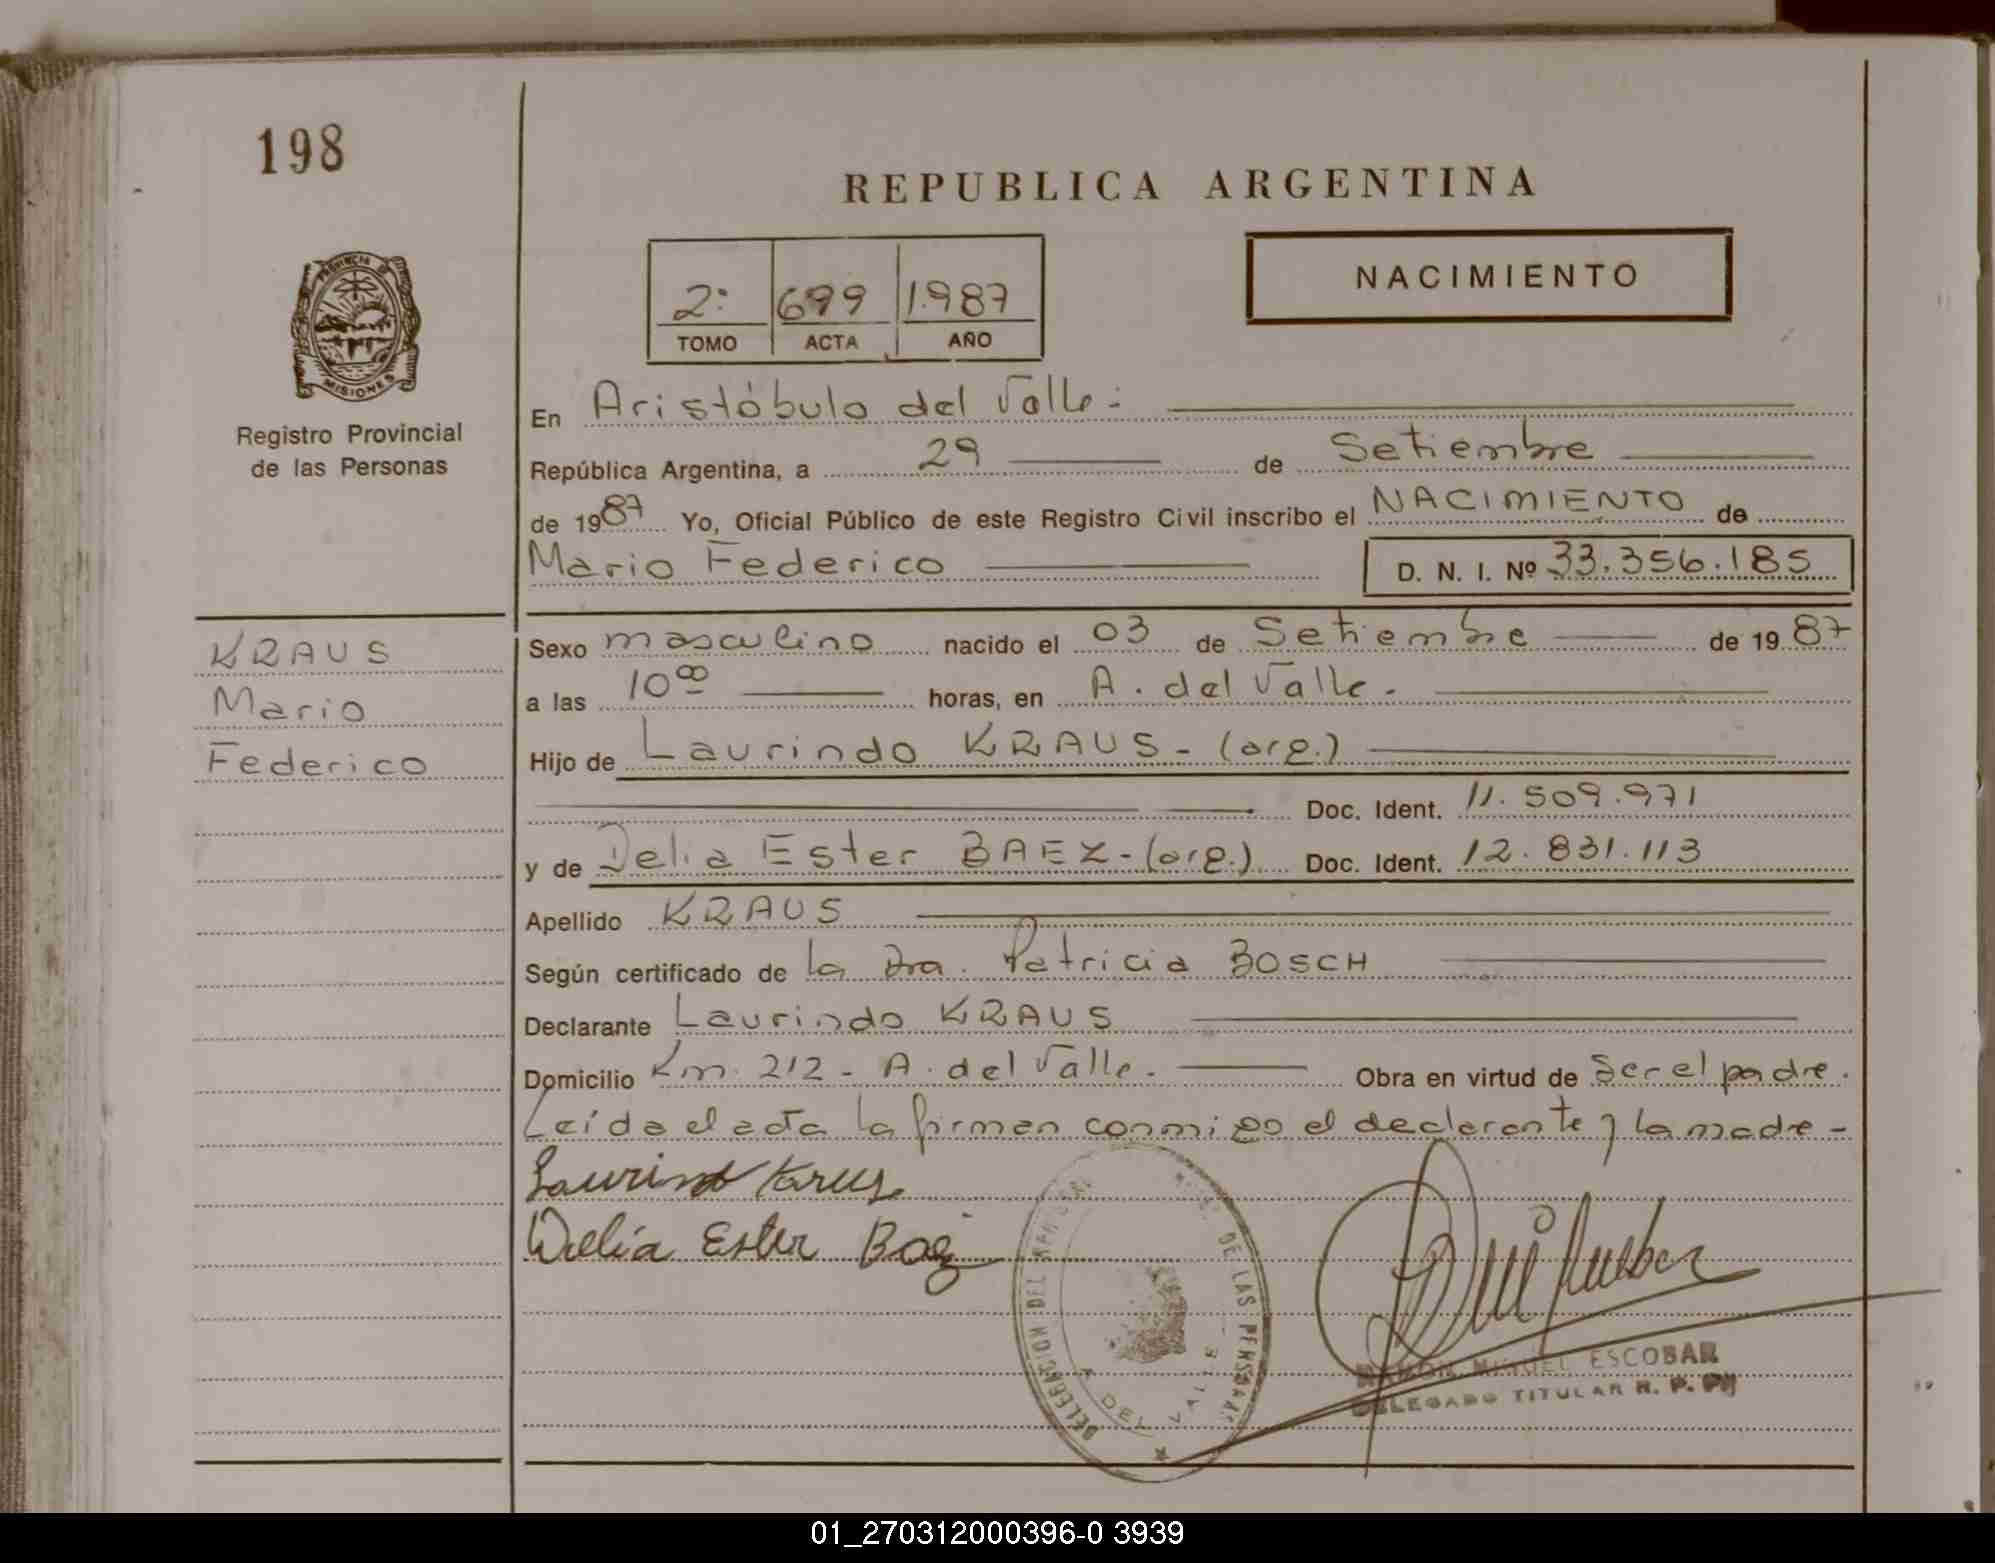 198
REPUBLICA ARGENTINA
PROVINCIA DE
MISIONES
Registro Provincial
de las Personas
NACIMIENTO
2: 699 1.987
TOMO ACTA AÑO
En Aristóbulo del Valle.-
República Argentina, a 29 de Setiembre
de 1987 Yo, Oficial Público de este Registro Civil inscribo el NACIMIENTO de
Mario Federico D. N. I. Nº 33.356.185
KRAUS
Mario
Federico
Sexo masculino nacido el 03 de Setiembre de 1987
a las 10 00 horas, en A. del Valle.
Hijo de Laurindo KRAUS - (arg.)
Doc. Ident. 11.509.971
y de Delia Ester BAEZ - (arg.) Doc. Ident. 12.831.113
Apellido KRAUS
Según certificado de la Dra. Patricia BOSCH
Declarante Laurindo KRAUS
Domicilio Km. 212 - A. del Valle. Obra en virtud de Ser el padre.
Leída el acta la firman conmigo el declarante y la madre -
Delia Ester Baez
DELEGACION DEL DE LAS PERSONAS
A DEL VALLE
RAMON MIGUEL ESCOBAR
DELEGADO TITULAR R. P. P.
01_270312000396-0 3939